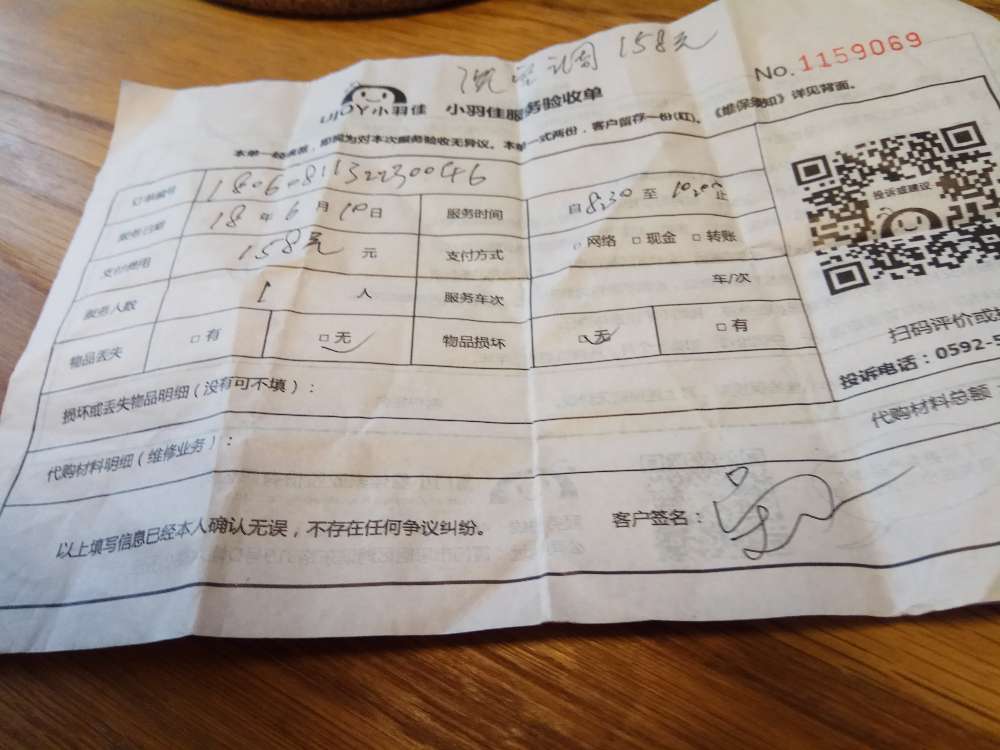 洗空调 158元
No. 1159069
UJOY小羽佳 小羽佳服务验收单
本单一经签署,即视为对本次服务验收无异议。本单一式两份,客户留存一份(红)。《维保须知》详见背面。
订单编号 1806081132230046
服务日期 18年6月10日 服务时间 自8:30至10:20止
支付费用 158元 元 支付方式 □网络 □现金 □转账
服务人数 1 人 服务车次 车/次
物品丢失 □有 □无 物品损坏 □无 □有
损坏或丢失物品明细(没有可不填):
代购材料明细(维修业务):
以上填写信息已经本人确认无误,不存在任何争议纠纷。
客户签名:
投诉或建议
扫码评价或
投诉电话:0592-5
代购材料总额